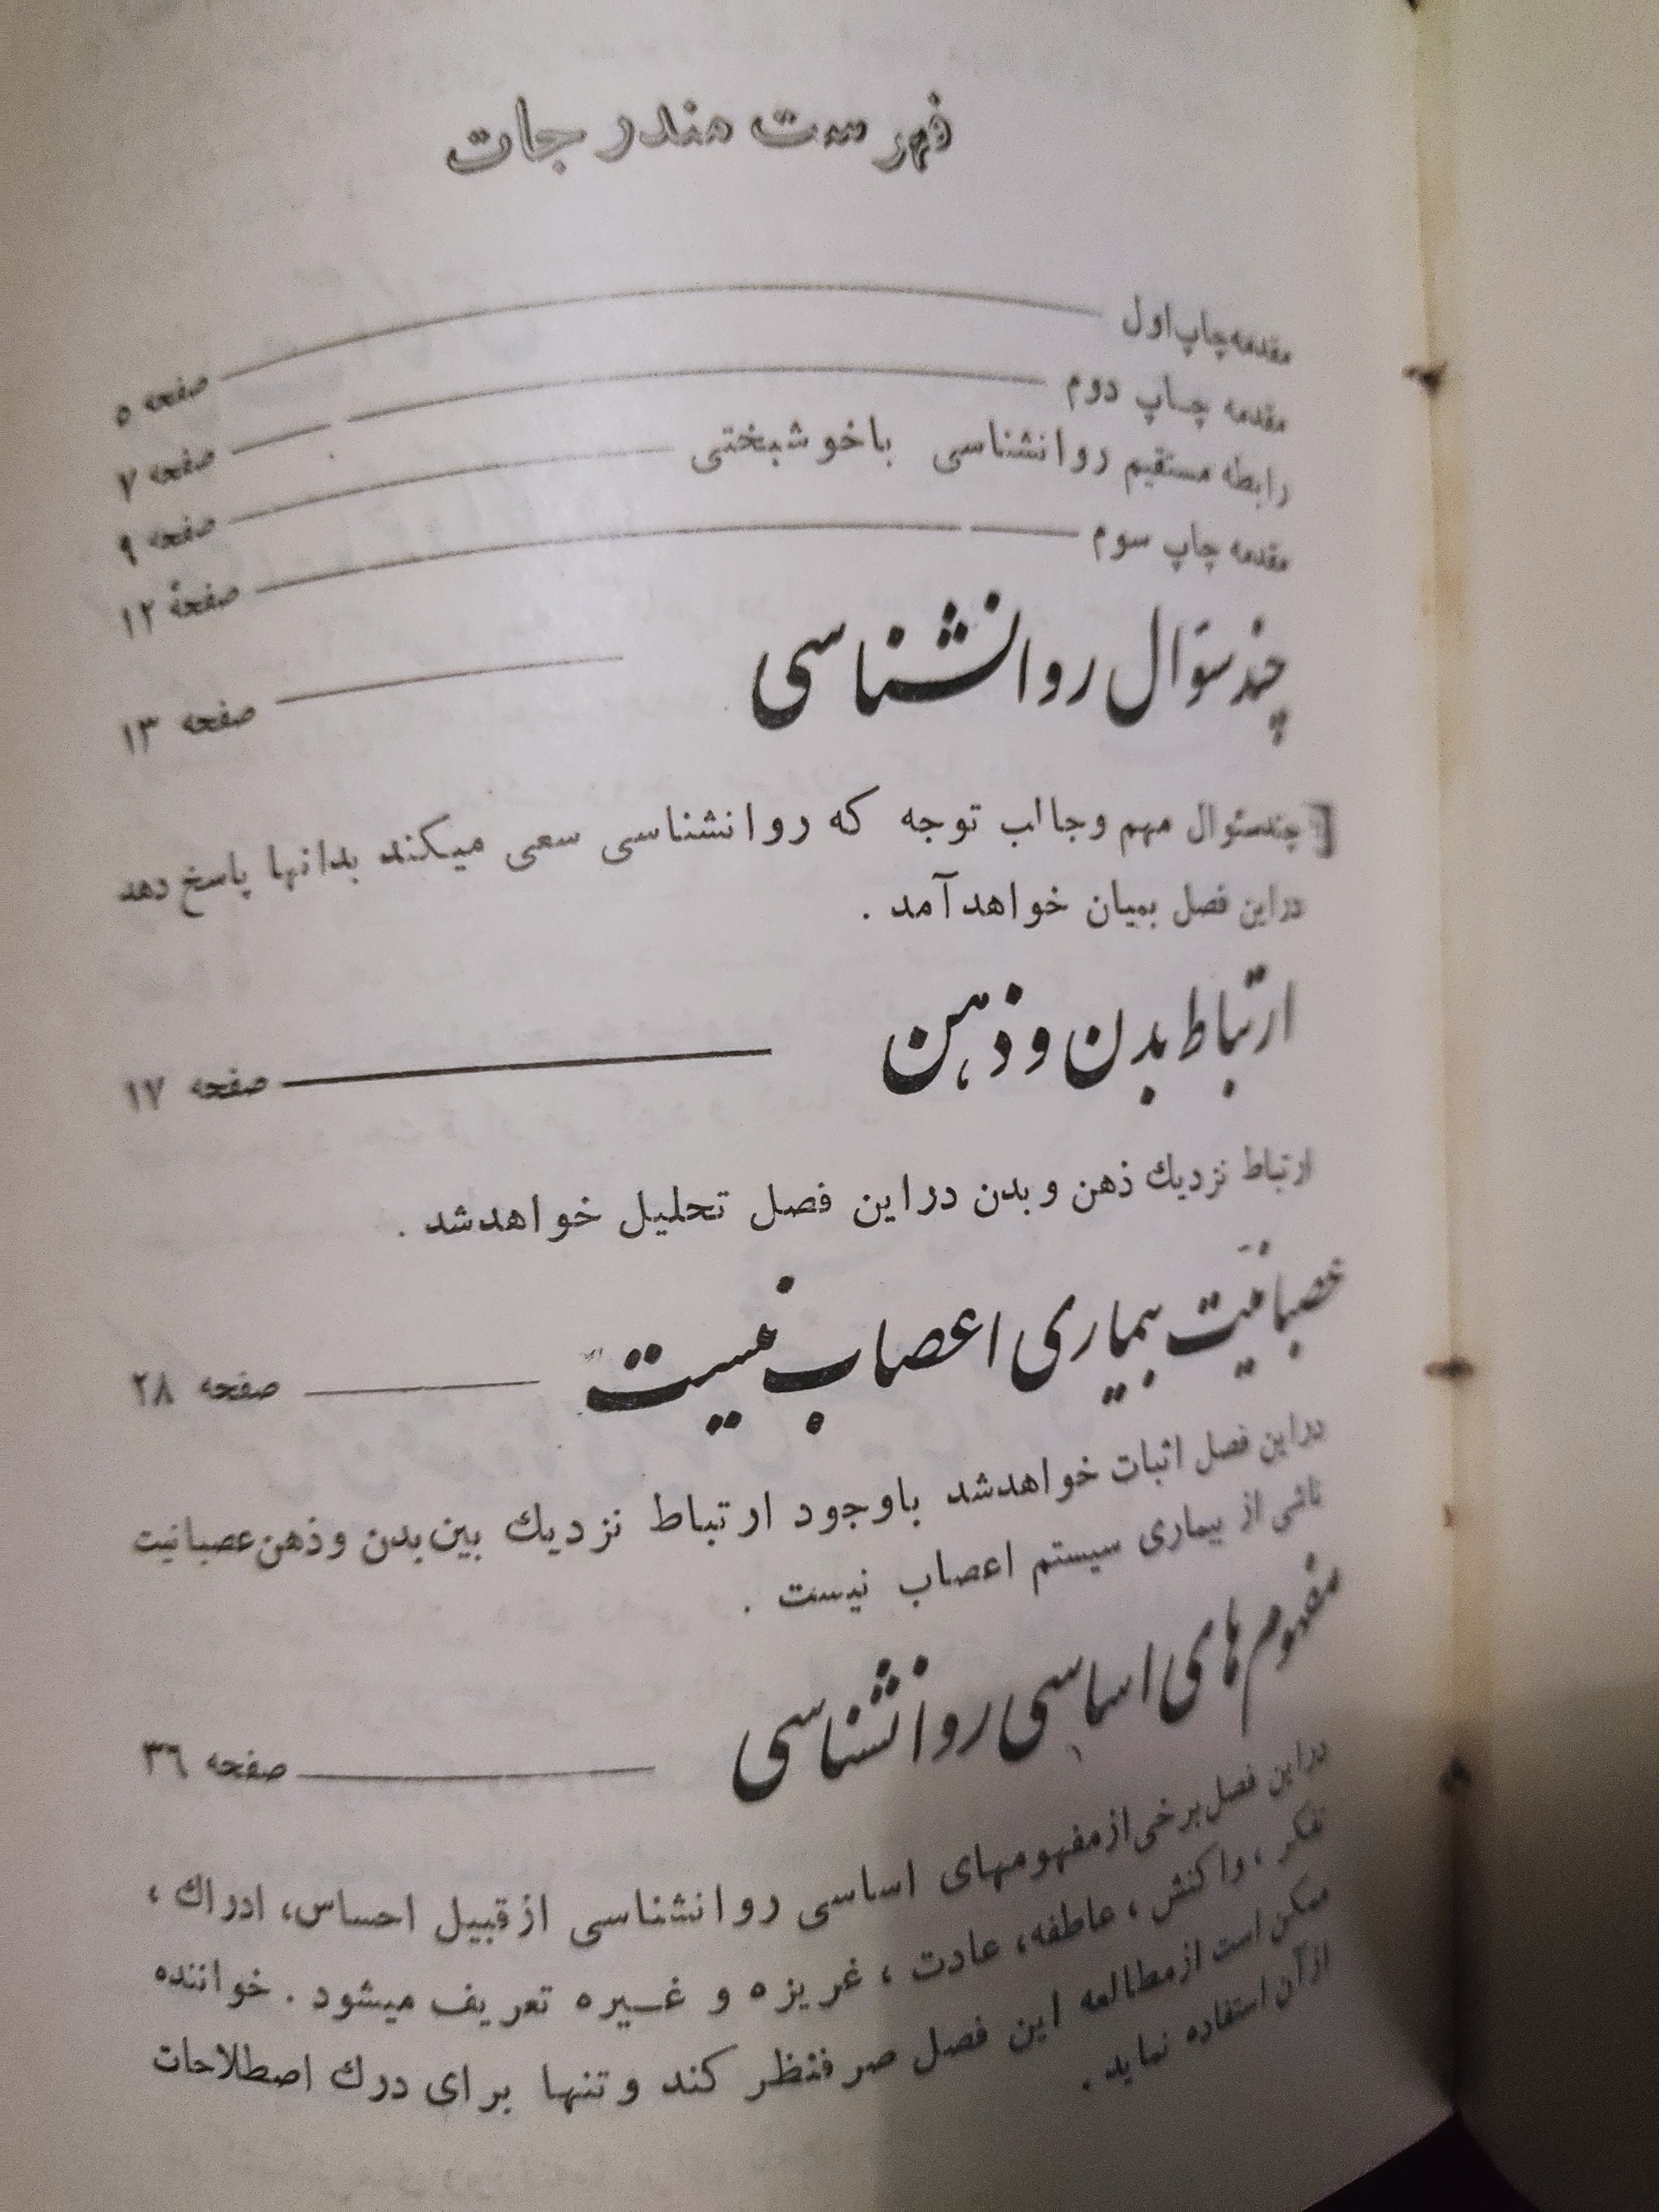 فهرست مندرجات
مقدمه چاپ اول صفحه ۵
مقدمه چاپ دوم صفحه ۷
رابطه مستقیم روانشناسی باخوشبختی صفحه ۹
مقدمه چاپ سوم صفحهٔ ۱۲
چند سئوال روانشناسی صفحه ۱۳
[چندسئوال مهم وجالب توجه که روانشناسی سعی میکند بدانها پاسخ دهد
دراین فصل بمیان خواهدآمد .
ارتباط بدن و ذهن صفحه ۱۷
ارتباط نزدیك ذهن و بدن دراین فصل تحلیل خواهدشد .
عصبانیت بیماری اعصاب نیست صفحه ۲۸
دراین فصل اثبات خواهدشد باوجود ارتباط نزدیك بین بدن و ذهن عصبانیت
ناشی از بیماری سیستم اعصاب نیست .
مفهوم های اساسی روانشناسی صفحه ۳۶
دراین فصل برخی از مفهومهای اساسی روانشناسی ازقبیل احساس، ادراك ،
تفکر ، واکنش ، عاطفه، عادت ، غریزه و غیره تعریف میشود . خواننده
ممکن است از مطالعه این فصل صرفنظر کند و تنها برای درك اصطلاحات
ازآن استفاده نماید .